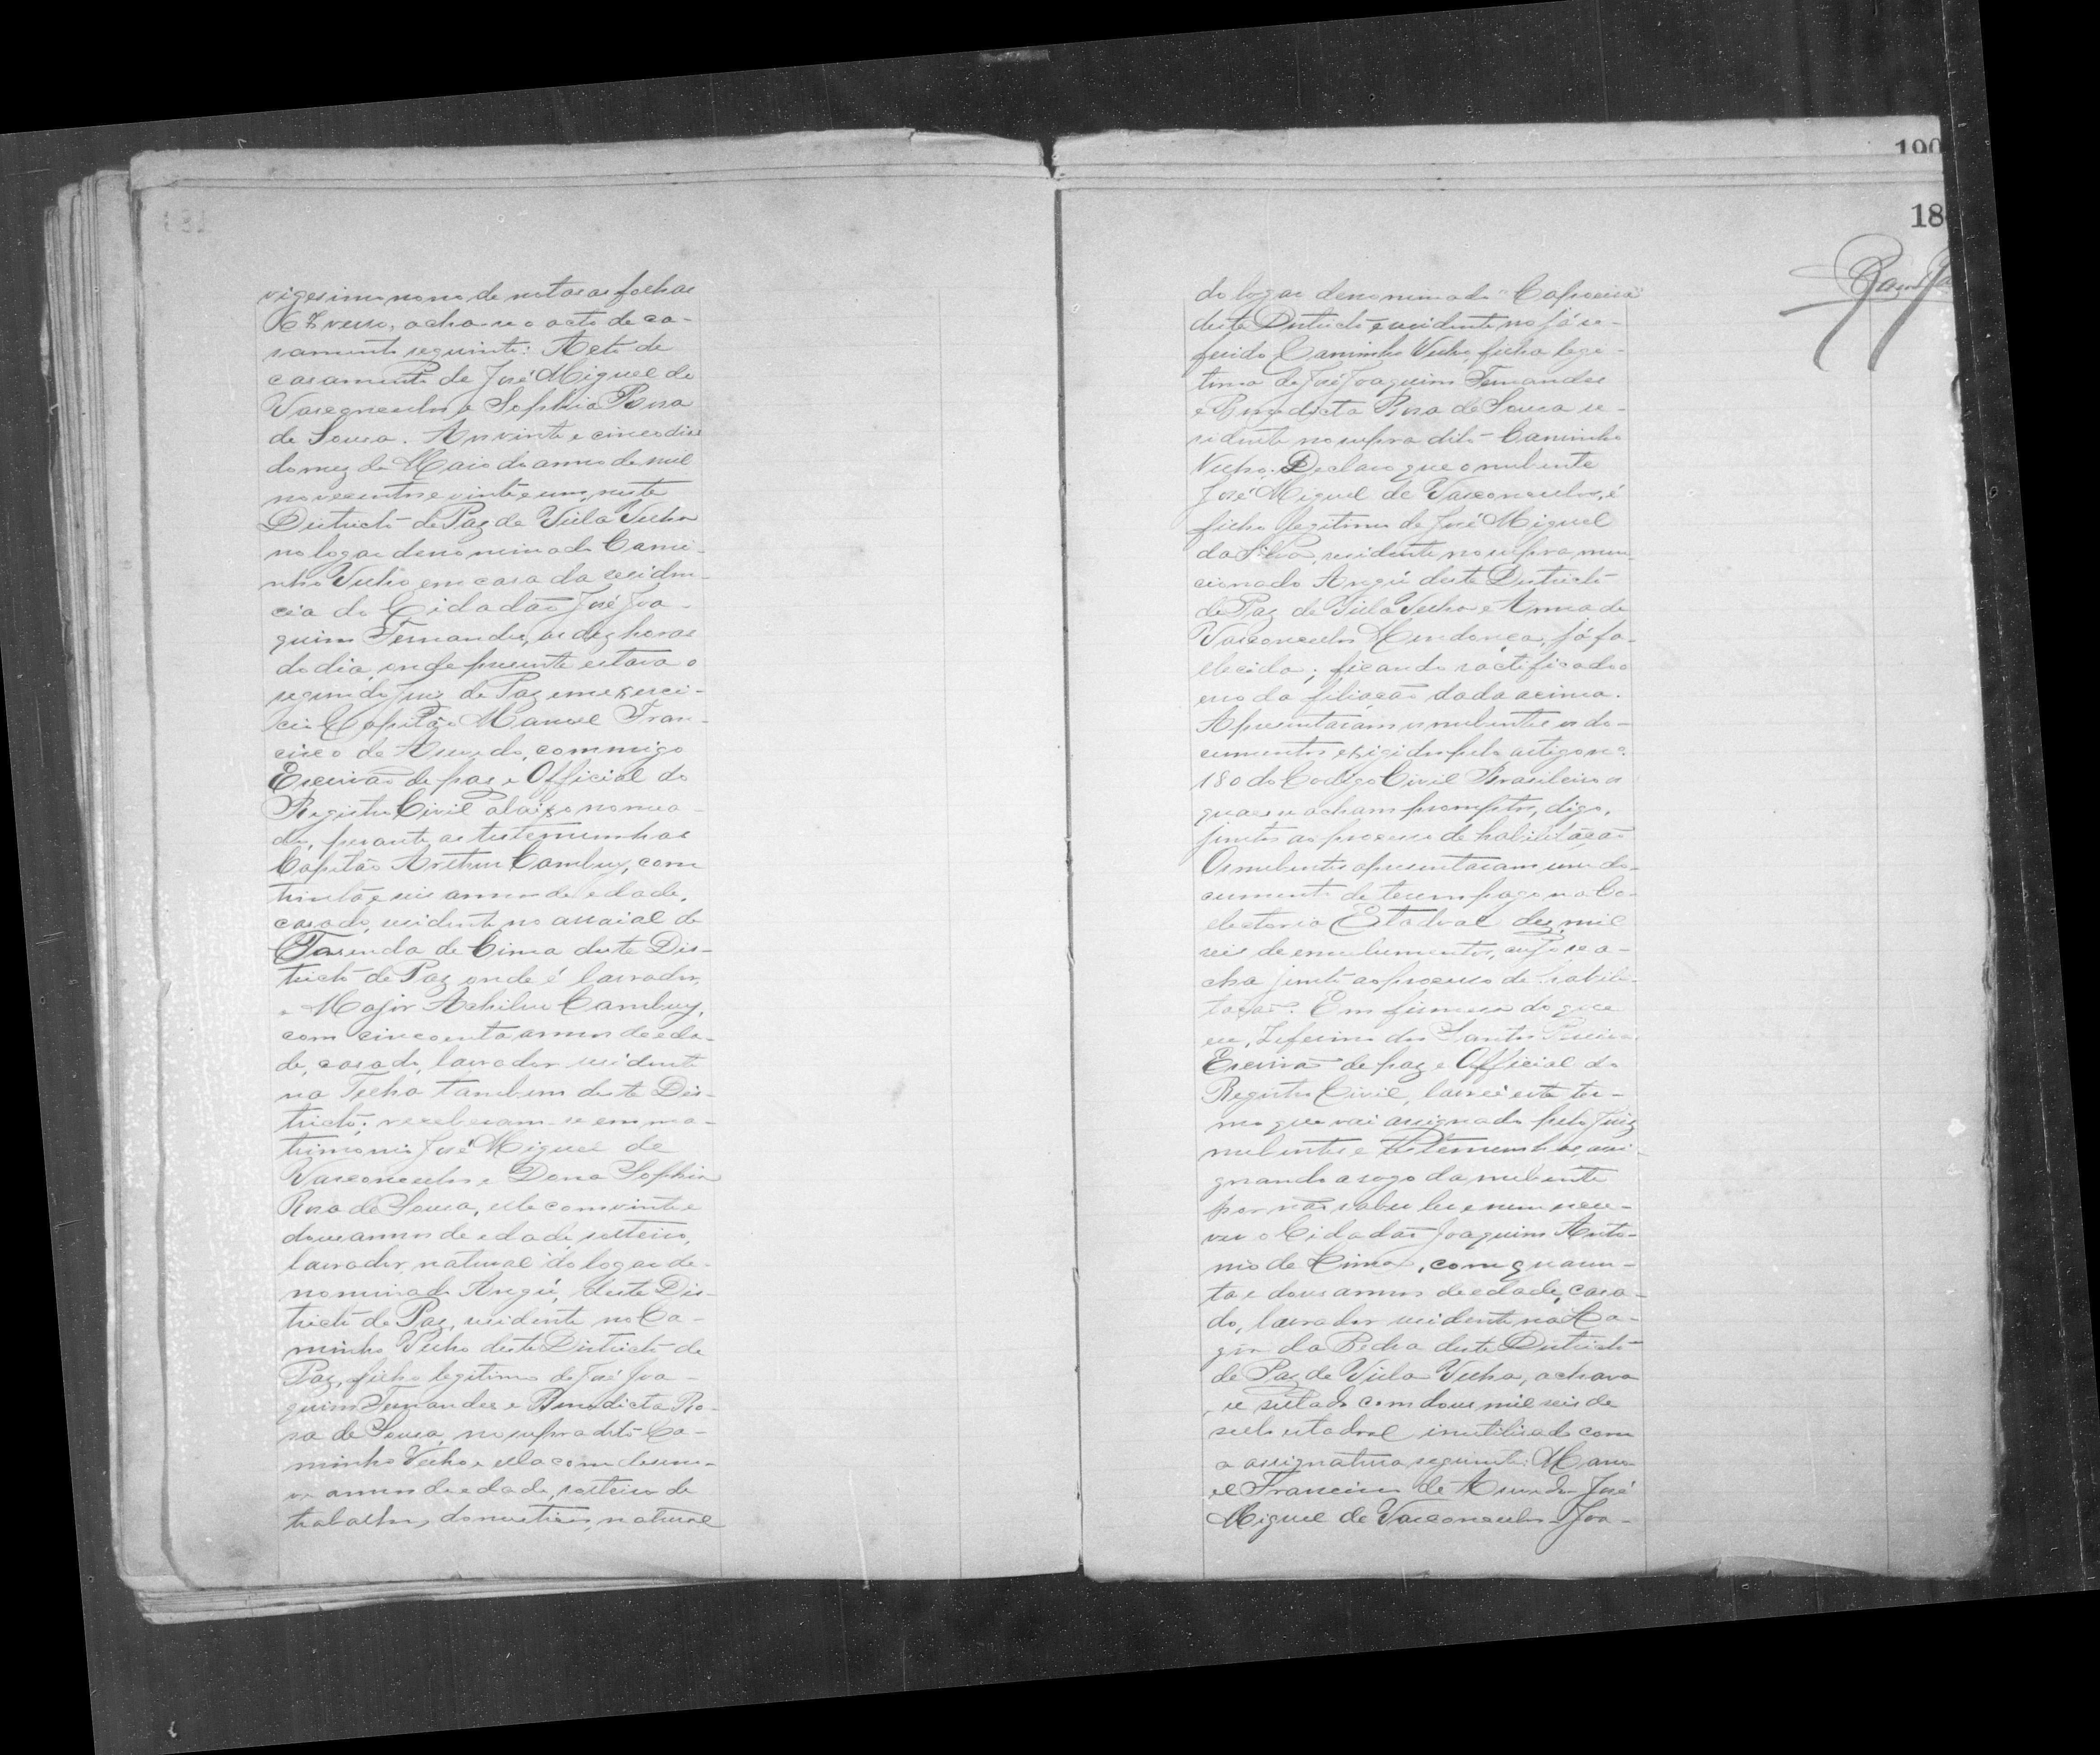 vigesimo nono de notas as folhas
verso, acha-se o acto de ca-
samento seguinte: Acto de
casamento de José Miguel de
Vasconcellos e Sophia Rosa
de Sousa. Aos vinte e cinco dias
do mez de Maio do anno de mil
novecentos e vinte e um, neste
Districto de Paz de Villa Velha
no logar denominado Cami-
nho Velho em casa da residen-
cia do Cidadão José Joa-
quim Fernandes, as dez horas
do dia, onde presente estava o
segundo Juiz de Paz em exerci-
cio Capitão Manoel Fran-
cisco de Azevedo, commigo
Escrivão de paz e Official do
Registro Civil abaixo nomea-
do, perante as testemunhas
Capitão Arthur Cambuy, com
trinta e seis annos de edade,
casado, residente no arraial de
Fasenda de Cima deste Dis-
tricto de Paz onde é lavrador,
e Major Achilles Cambuy,
com cincoenta annos de eda-
de, casado, lavrador residente
na Telha tambem deste Dis-
tricto; receberam-se em ma-
trimonio José Miguel de
Vasconcellos e Dona Sophia
Rosa de Sousa, elle com vinte e
dous annos de edade, solteiro,
lavrador, natural do logar de-
nominado Angú, deste Dis-
tricto de Paz, residente no Ca-
minho Velho deste Districto de
Paz, filho legitimo de José Joa-
quim Fernandes e Benedicta Ro-
sa de Sousa, no supra dito Ca-
minho Velho e ella com deseno-
ve annos de edade, solteira de
trabalhos domesticos, natural
190
18
do logar denominado "Capoeira"
deste Districto e residente no já re-
ferido Caminho Velho, filha legi-
tima de José Joaquim Fernandes
e Benedicta Rosa de Sousa re-
sidente no supra dito Caminho
Velho. Declaro que o nubente
José Miguel de Vasconcellos, é
filho legitimo de José Miguel
da Silva, residente no supra men-
cionado Angú deste Districto
de Paz de Villa Velha e Anna de
Vasconcellos Mendonça, já fa-
llecida; ficando ractificado o
erro da filiação dada acima.
Apresentaram os nubentes os do-
cumentos exigidos pelo artigo nº
180 do Codigo Civil Brasileiro os
quaes se acham promptos, digo,
juntos ao processo de habilitação
Os nubentes apresentaram um do-
cumento de terem pago na Co-
llectoria Estadoal dez mil
reis de emolumentos, cujo se a-
cha junto ao processo de habili-
tação. Em firmesa do que
eu, Zeferino dos Santos
Escrivão de paz e Official do
Registro Civil, lavrei este ter-
mo que vai assignado pelo Juiz
nubentes e testemunhas, assi-
gnando a rogo da nubente
por não saber ler e nem escre-
ver o Cidadão Joaquim Anto-
nio de Lima, com quaren-
ta e dous annos de edade, casa-
do, lavrador residente na La-
goa da Pedra deste Districto
de Paz de Villa Velha, achava
se sellado com dous mil reis de
sello estadoal inutilisado com
a assignatura seguinte: Mano-
el Francisco de Azevedo José
Miguel de Vasconcellos - Joa-